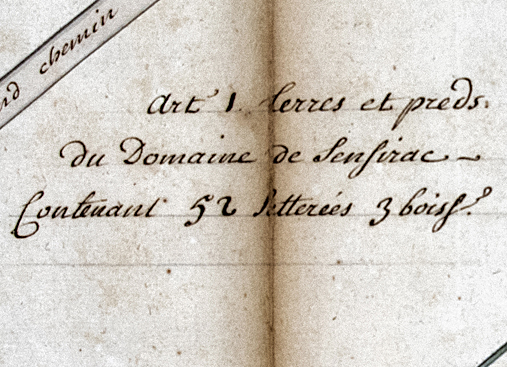 nd chemin
Art 1. terres et preds.
du Domaine de Sensirac
Contenant 52 setterées 3 boiss.